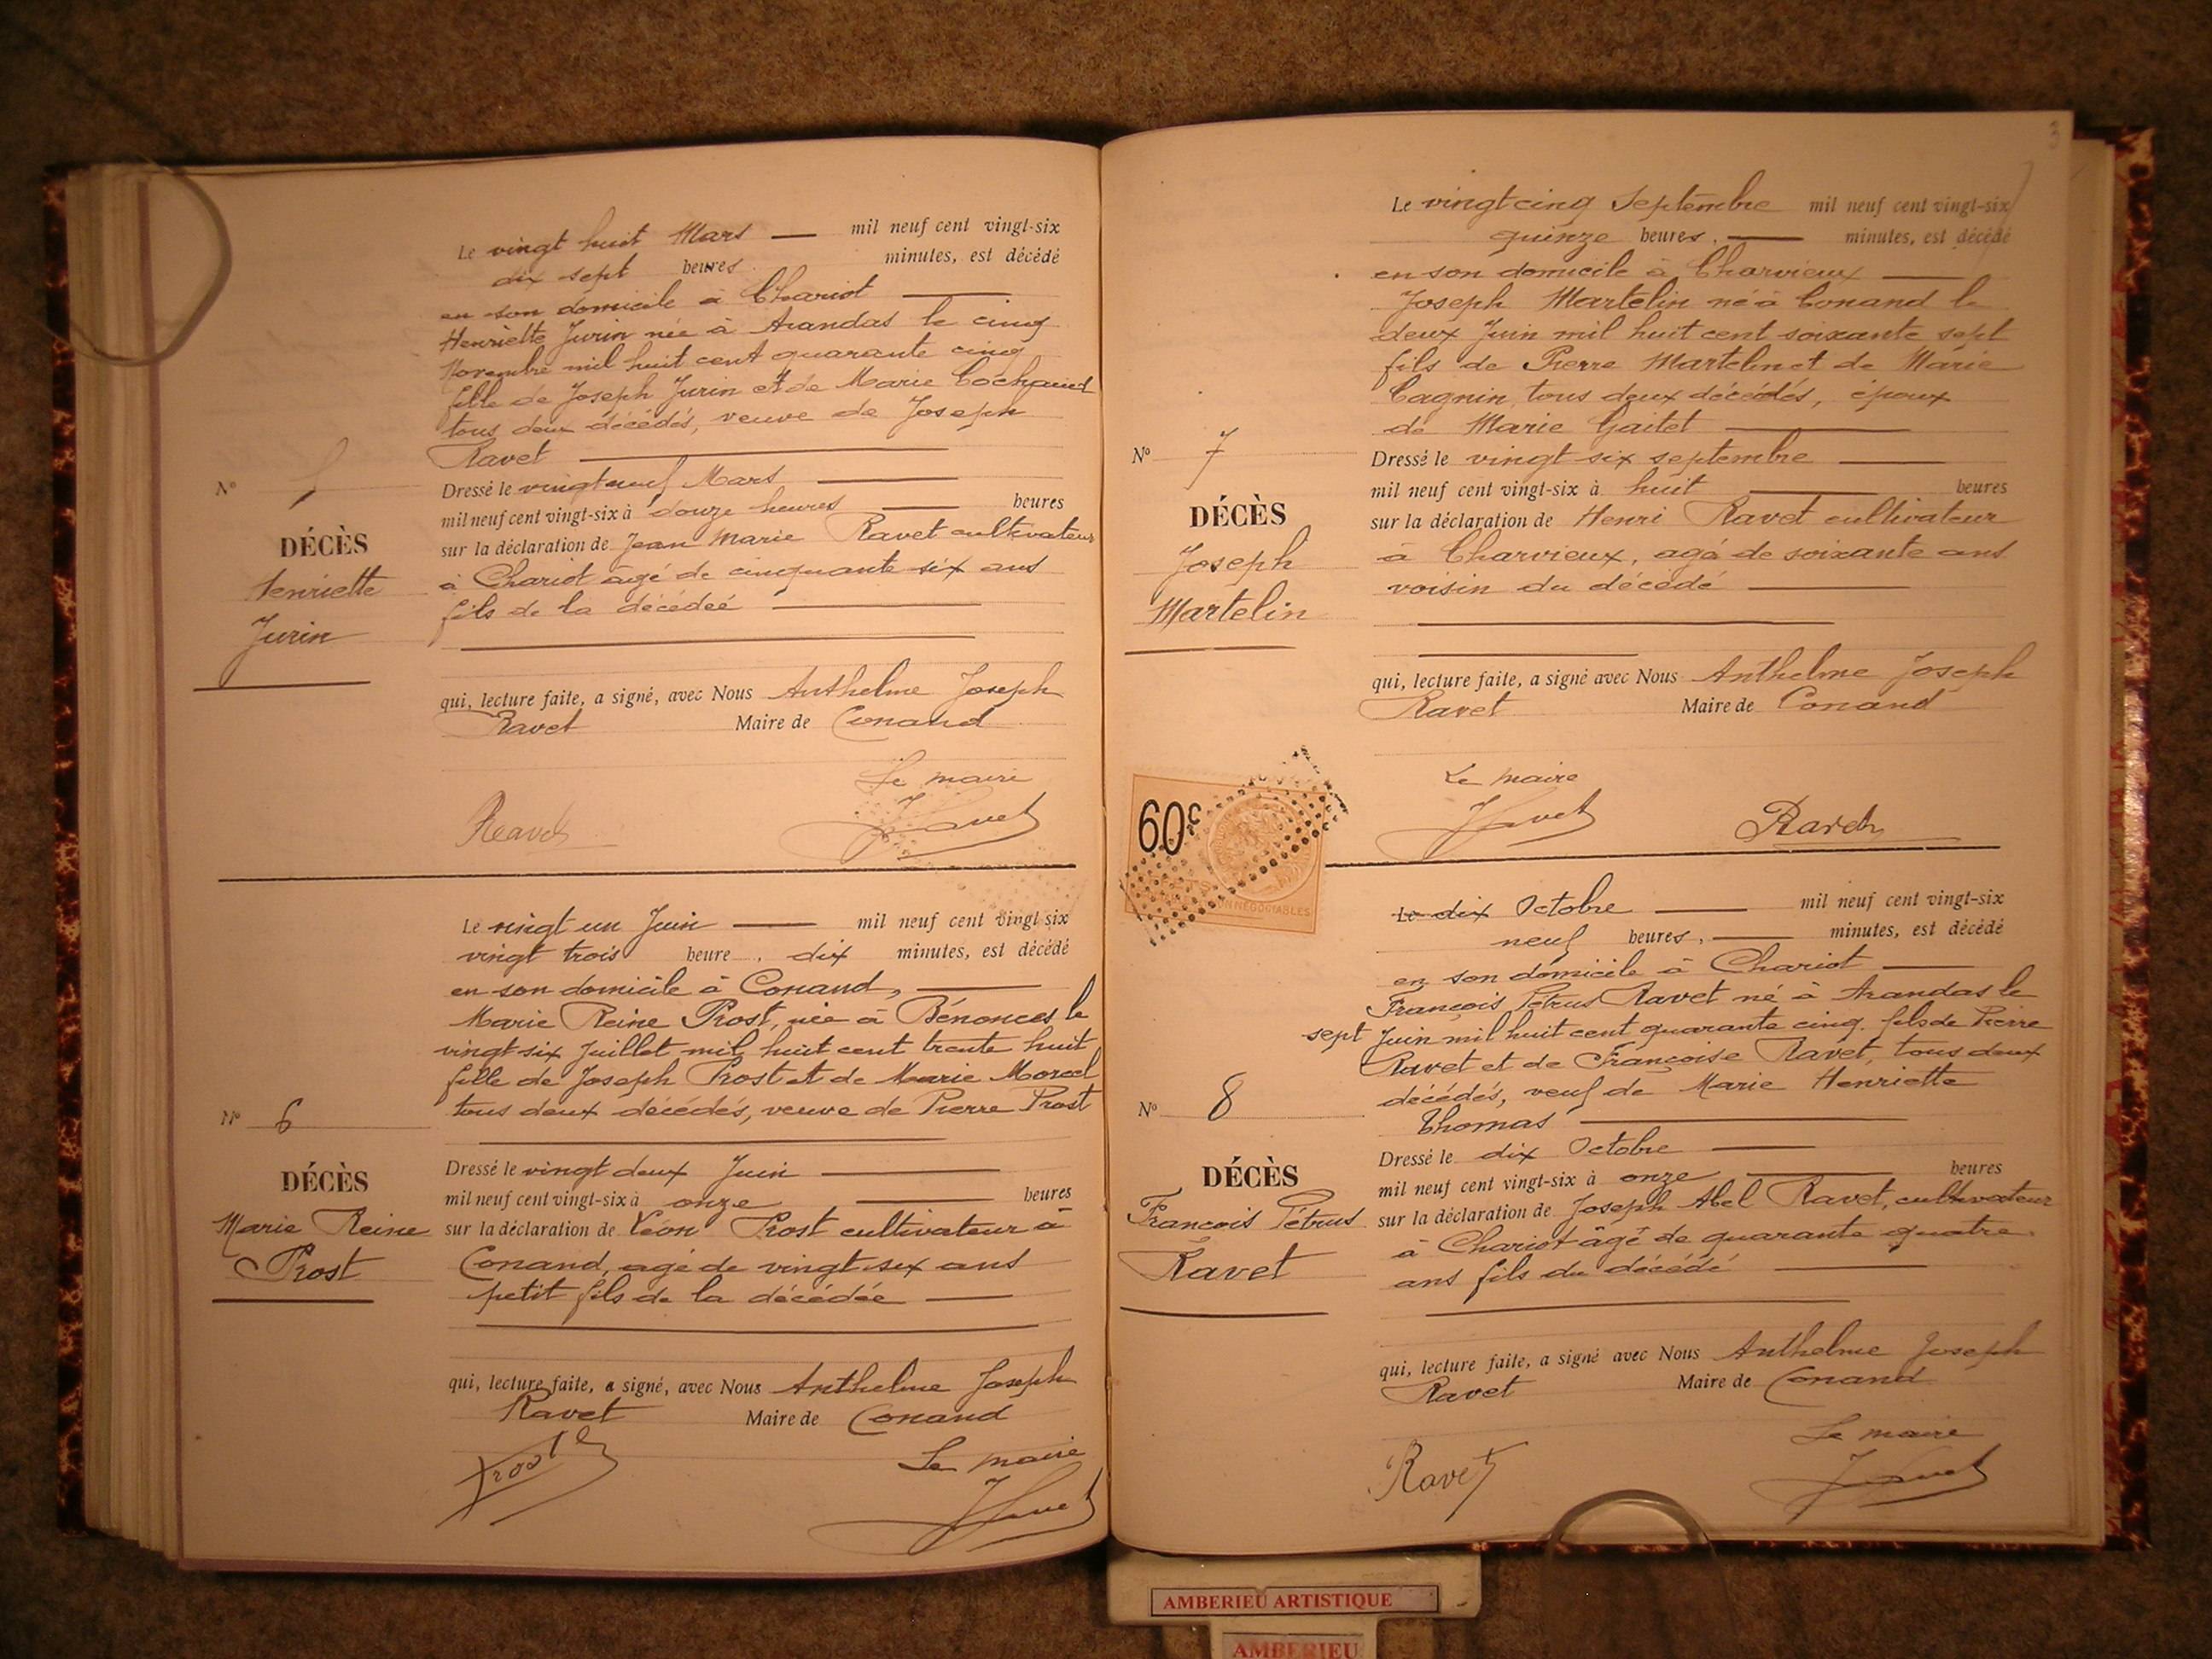 Le vingt huit Mars — mil neuf cent vingt-six
dix sept heures minutes, est décédé
en son domicile à Chariot —
Henriette Jurin née à Arandas le cinq
Novembre mil huit cent quarante cinq
fille de Joseph Jurin et de Marie
tous deux décédés, veuve de Joseph
Ravet —
N° 5
DÉCÈS
Henriette
Jurin
Dressé le vingt neuf Mars —
mil neuf cent vingt-six à douze heures — heures
sur la déclaration de Jean Marie Ravet cultivateur
à Chariot âgé de cinquante six ans
fils de la décédeé —
qui, lecture faite, a signé, avec Nous Anthelme Joseph
Ravet Maire de Conand
Le maire
JRavet
Le vingt un Juin — mil neuf cent vingt six
vingt trois heure, dix minutes, est décédé
en son domicile à Conand, —
Marie Reine Prost, née à Bénonces le
vingt six Juillet mil huit cent trente huit
fille de Joseph Prost et de Marie Morcel
tous deux décédés, veuve de Pierre Prost
N° 6
DÉCÈS
Marie Reine
Prost
Dressé le vingt deux Juin —
mil neuf cent vingt-six à onze — heures
sur la déclaration de Léon Prost cultivateur à
Conand, agé de vingt six ans
petit fils de la décédée —
qui, lecture faite, a signé, avec Nous Anthelme Joseph
Ravet Maire de Conand
Prost L
Le maire
JRavet
3
Le vingt cinq Septembre mil neuf cent vingt-six
quinze heures, — minutes, est décédé
en son domicile à Charvieux —
Joseph Martelin né à Conand le
deux Juin mil huit cent soixante sept
fils de Pierre Martelin et de Marie
Cagnin, tous deux décédés, époux
de Marie Gaitet —
N° 7
DÉCÈS
Joseph
Martelin
Dressé le vingt six septembre —
mil neuf cent vingt-six à huit — heures
sur la déclaration de Henri Ravet cultivateur
à Charvieux, agé de soixante ans
voisin du décédé —
qui, lecture faite, a signé avec Nous Anthelme Joseph
Ravet Maire de Conand
Le maire
JRavet
Ravet
60c
Le dix Octobre — mil neuf cent vingt-six
neuf heures, — minutes, est décédé
en son domicile à Chariot —
François Pétrus Ravet né à Arandas le
sept Juin mil huit cent quarante cinq. fils de Pierre
Ravet et de Françoise Ravet, tous deux
décédés, veuf de Marie Henriette
Thomas —
N° 8
DÉCÈS
François Pétrus
Ravet
Dressé le dix Octobre —
mil neuf cent vingt-six à onze — heures
sur la déclaration de Joseph Abel Ravet, cultivateur
à Chariot âgé de quarante quatre
ans fils du décédé —
qui, lecture faite, a signé avec Nous Anthelme Joseph
Ravet Maire de Conand
Le maire
Ravet
JRavet
AMBERIEU ARTISTIQUE
AMBERIEU